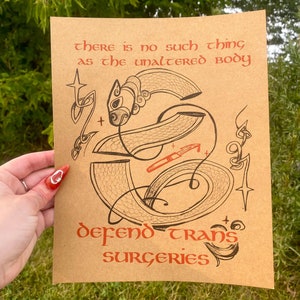 there is no such thing
as the unaltered body
defend trans
surgeries